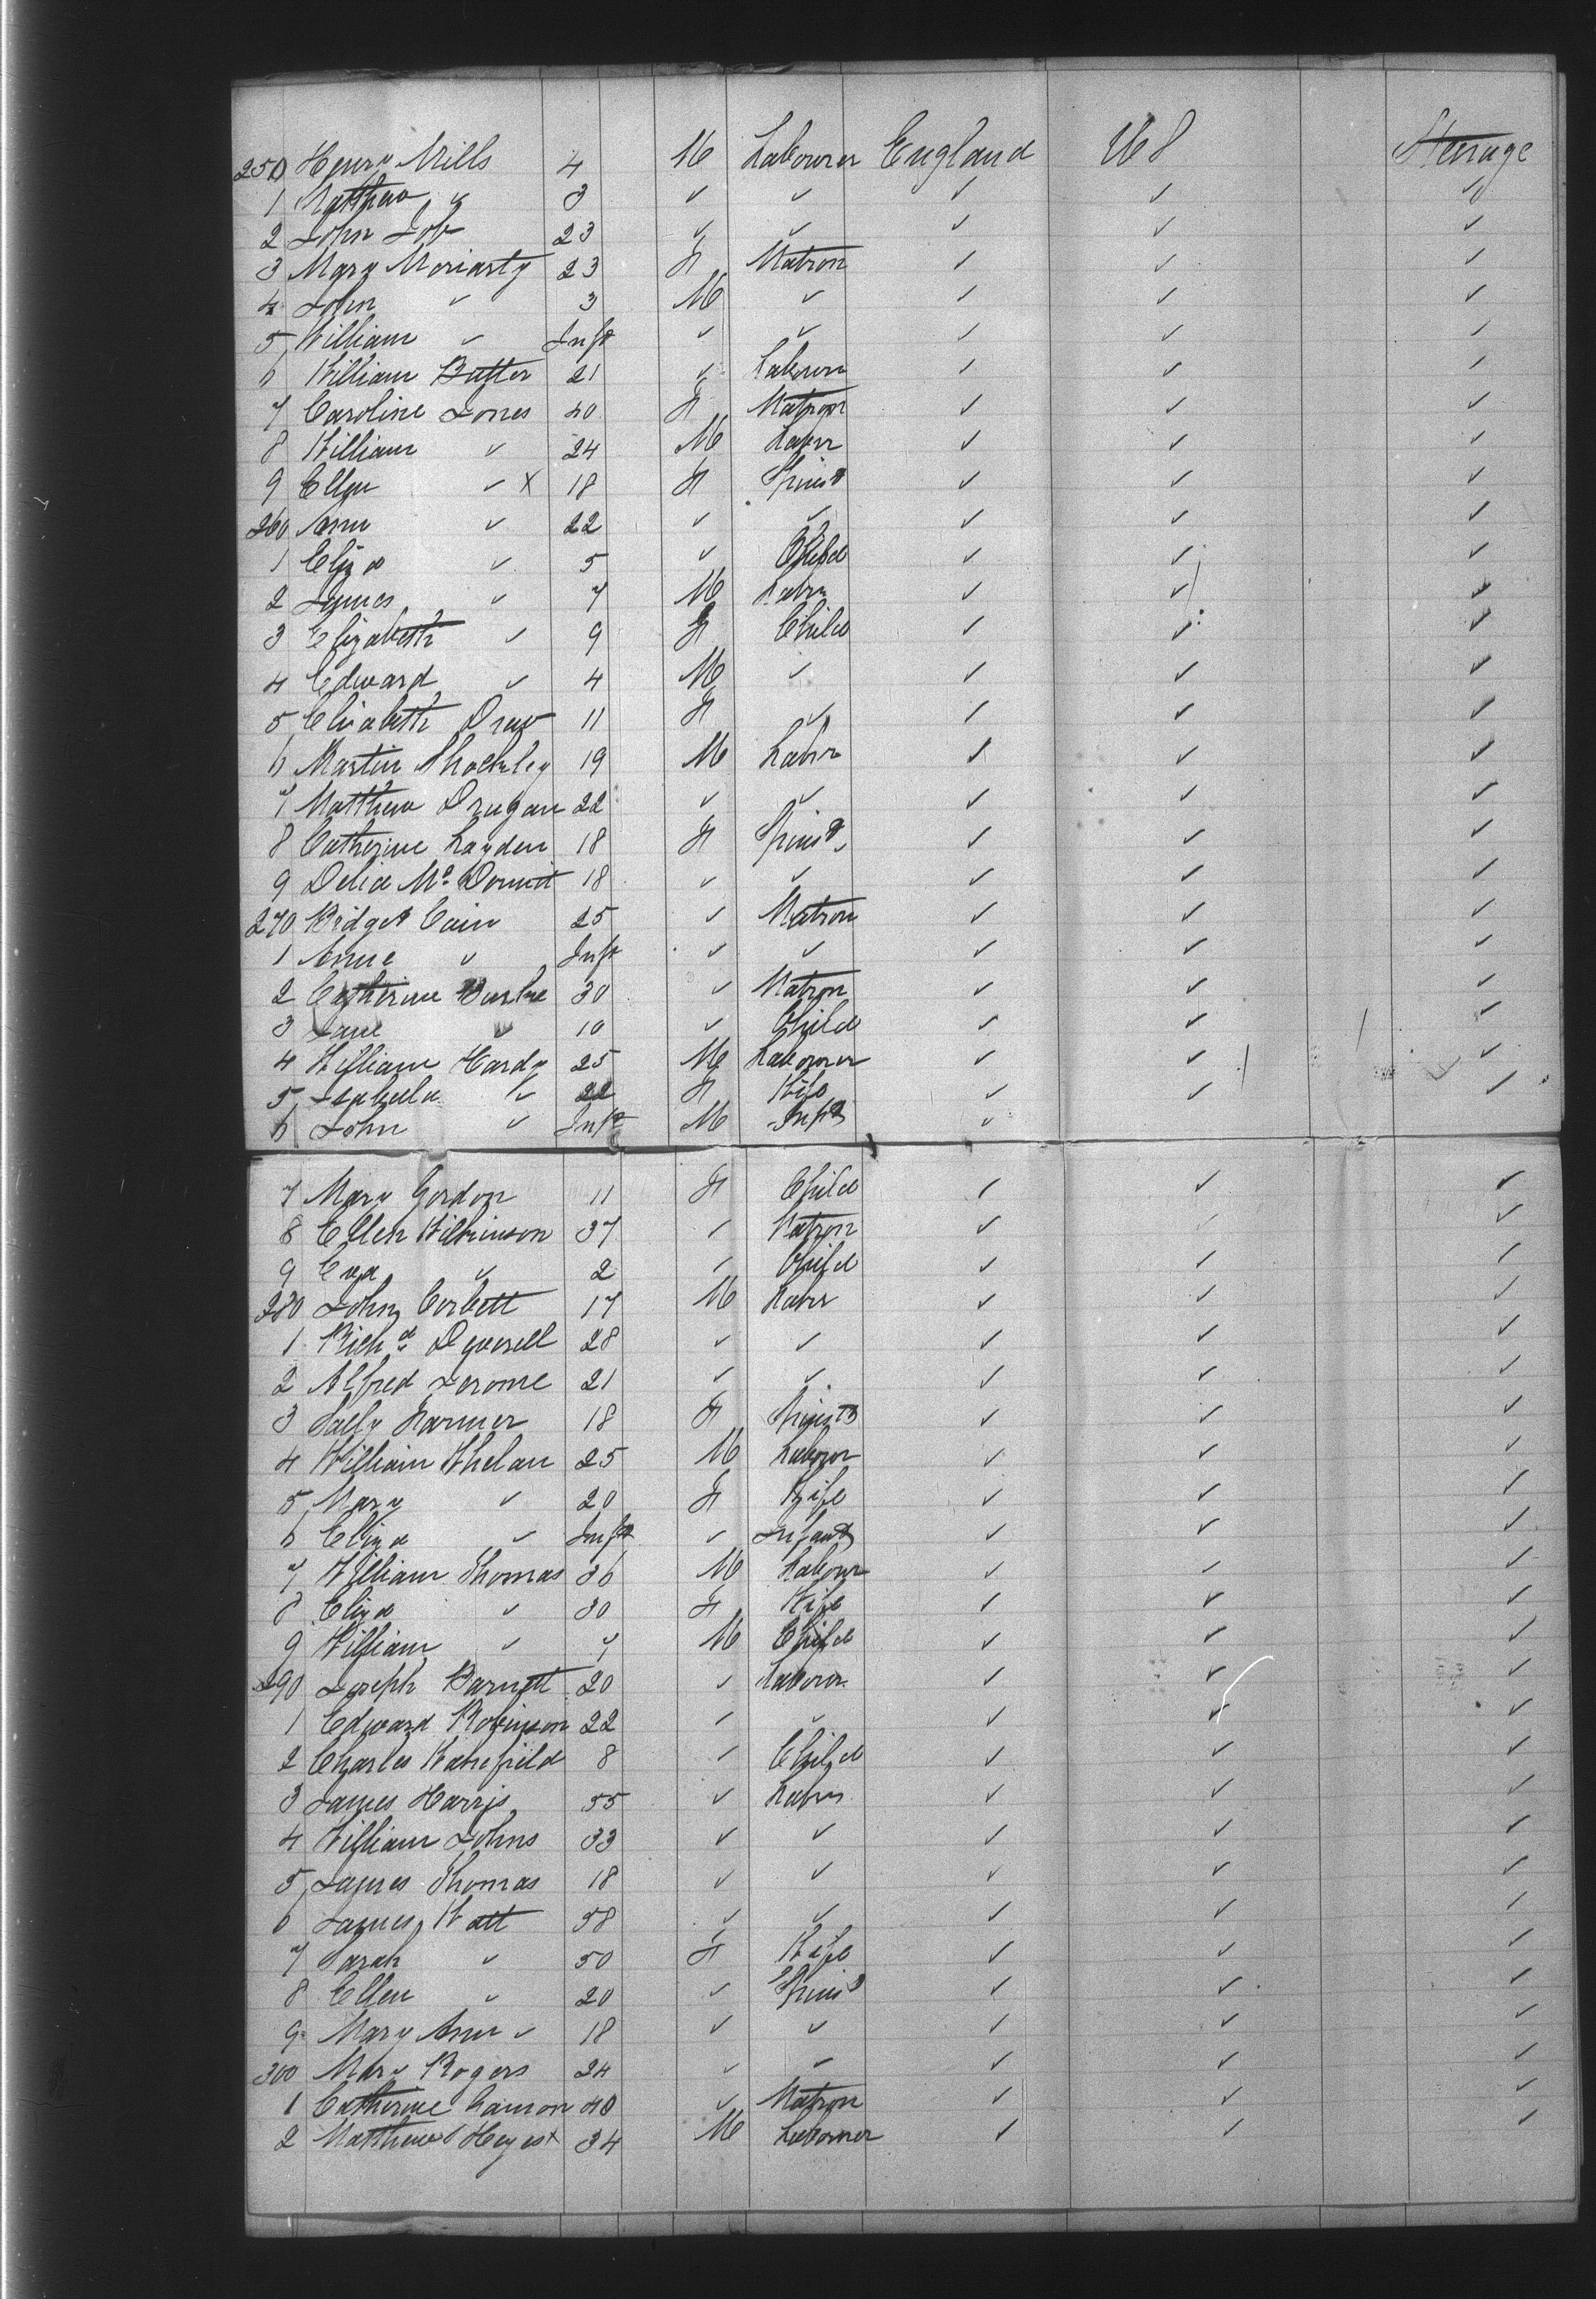 250 Henry Mills 4 M Labourer England US Steerage
1 Matthew ✓ 3 ✓ ✓ ✓ ✓ ✓
2 John Job 23 ✓ ✓ ✓ ✓ ✓
3 Mary Moriarty 23 F Matron ✓ ✓ ✓
4 John ✓ 3 M ✓ ✓ ✓ ✓
5 William ✓ Inft ✓ ✓ ✓ ✓ ✓
6 William Butter 21 ✓ Labour ✓ ✓ ✓
7 Caroline Jones 40 F Matron ✓ ✓ ✓
8 William ✓ 24 M Labr ✓ ✓ ✓
9 Ellen ✓ X 18 F Spinst ✓ ✓ ✓
260 Ann ✓ 22 ✓ ✓ ✓ ✓ ✓
1 Eliza ✓ 5 ✓ Child ✓ ✓ ✓
2 James ✓ 7 M Labr ✓ ✓ ✓
3 Elizabeth ✓ 9 F Child ✓ ✓ ✓
4 Edward ✓ 4 M ✓ ✓ ✓ ✓
5 Elizabeth Drew 11 F ✓ ✓ ✓ ✓
6 Martin Shockley 19 M Labr ✓ ✓ ✓
7 Matthew Drugan 22 ✓ ✓ ✓ ✓ ✓
8 Catherine Layden 18 F Spinst ✓ ✓ ✓
9 Delia Mc 18 ✓ ✓ ✓ ✓ ✓
270 Bridget Cain 25 ✓ Matron ✓ ✓ ✓
1 Anne ✓ Inft ✓ ✓ ✓ ✓ ✓
2 Catherine Burke 30 ✓ Matron ✓ ✓ ✓
3 Jane ✓ 10 ✓ Child ✓ ✓ ✓
4 William Hardy 25 M Labourer ✓ ✓ ✓
5 Isabella ✓ 22 F Wife ✓ ✓ ✓
6 John ✓ Inft M Inft ✓
7 Mary Gordon 11 F Child ✓ ✓ ✓
8 Ellen Wilkinson 37 ✓ Matron ✓ ✓ ✓
9 Eva ✓ 2 ✓ Child ✓ ✓ ✓
280 John Corbett 17 M Labr ✓ ✓ ✓
1 Richd Deverell 28 ✓ ✓ ✓ ✓ ✓
2 Alfred Jerome 21 ✓ ✓ ✓ ✓ ✓
3 Sally Farmer 18 F Spinst ✓ ✓ ✓
4 William Whelan 25 M Labour ✓ ✓ ✓
5 Mary ✓ 20 F Wife ✓ ✓ ✓
6 Eliza ✓ Inft ✓ Infant ✓ ✓ ✓
7 William Thomas 36 M Labour ✓ ✓ ✓
8 Eliza ✓ 30 F Wife ✓ ✓ ✓
9 William ✓ 7 M Child ✓ ✓ ✓
290 Joseph Barnett 20 ✓ Labour ✓ ✓ ✓
1 Edward Robinson 22 ✓ ✓ ✓ ✓ ✓
2 Charles Wakefield 8 ✓ Child ✓ ✓ ✓
3 James Harris 55 ✓ Labr ✓ ✓ ✓
4 William Johns 33 ✓ ✓ ✓ ✓ ✓
5 James Thomas 18 ✓ ✓ ✓ ✓ ✓
6 James Watt 58 ✓ ✓ ✓ ✓ ✓
7 Sarah ✓ 50 F Wife ✓ ✓ ✓
8 Ellen ✓ 20 ✓ Spinst ✓ ✓ ✓
9 Mary Ann ✓ 18 ✓ ✓ ✓ ✓ ✓
300 Mary Rogers 24 ✓ ✓ ✓ ✓ ✓
1 Catherine 40 ✓ Matron ✓ ✓ ✓
2 Matthew Heyes x 34 M Labourer ✓ ✓ ✓